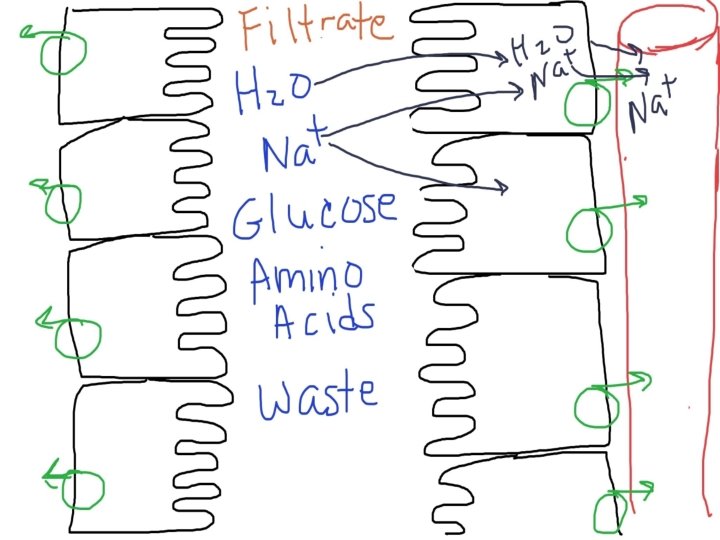 Filtrate
H₂O
Na⁺
Glucose
Amino
Acids
Waste
H₂O
Na⁺
Na⁺